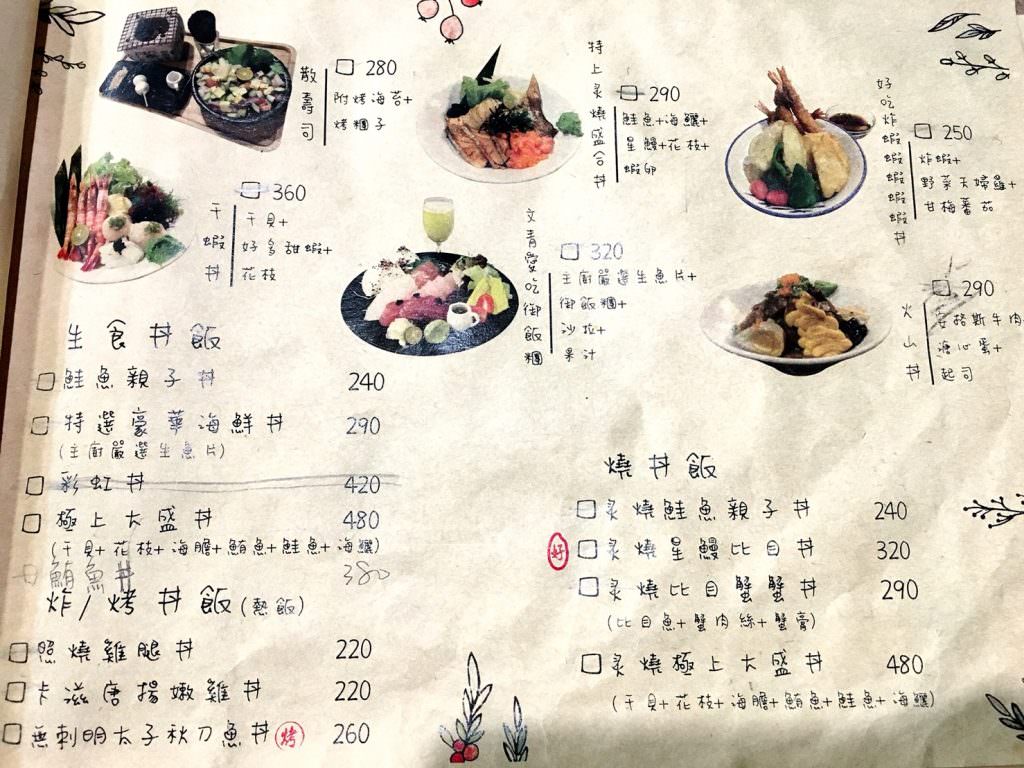 散壽司
280
附烤海苔+
烤糰子
特上炙燒盛合丼
290
鮭魚+海鱺+
星鰻+花枝+
蝦卵
好吃炸蝦蝦蝦蝦丼
250
炸蝦+
野菜天婦羅+
甘梅番茄
干蝦丼
360
干貝+
好多甜蝦+
花枝
文青愛吃御飯糰
320
主廚嚴選生魚片+
御飯糰+
沙拉+
果汁
火山丼
290
安格斯牛肉+
溏心蛋+
起司
生食丼飯
鮭魚親子丼 240
特選豪華海鮮丼 290
(主廚嚴選生魚片)
彩虹丼 420
極上大盛丼 480
(干貝+花枝+海膽+鮪魚+鮭魚+海鱺)
鮪魚丼 380
炸/烤丼飯(熱飯)
照燒雞腿丼 220
卡滋唐揚嫩雞丼 220
無刺明太子秋刀魚丼 烤 260
燒丼飯
炙燒鮭魚親子丼 240
好 炙燒星鰻比目丼 320
炙燒比目蟹蟹丼 290
(比目魚+蟹肉絲+蟹膏)
炙燒極上大盛丼 480
(干貝+花枝+海膽+鮪魚+鮭魚+海鱺)